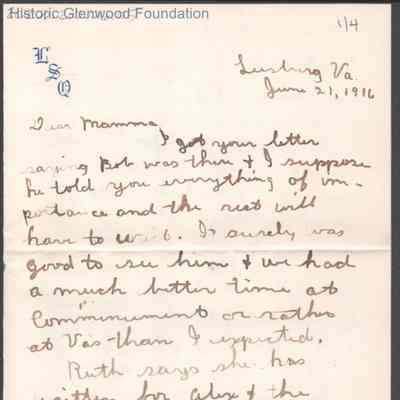 Historic Glenwood Foundation
1/4
LSQ
Leesburg Va.
June 21, 1916
Dear Mamma,
I got your letter
saying Bob was there & I suppose
he told you everything of im-
portance and the rest will
have to wait. It surely was
good to see him & we had
a much better time at
Commencement or rather
at Vas than I expected.
Ruth says she has
written for Alex & the